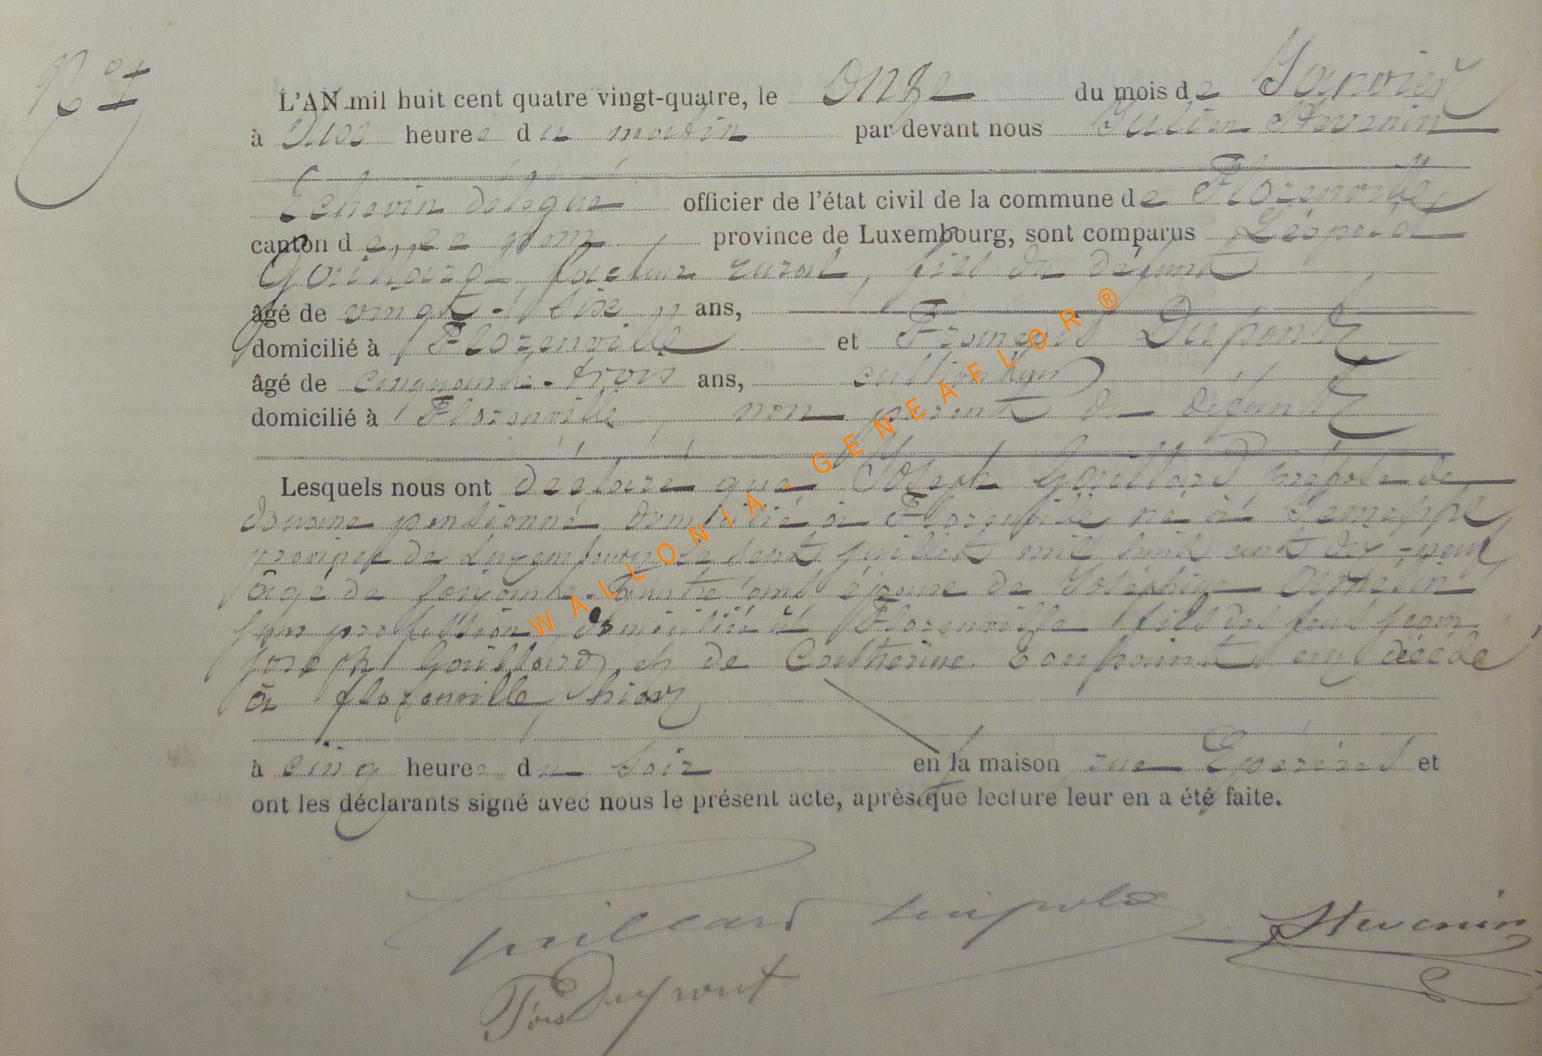 L'AN mil huit cent quatre vingt-quatre, le onze du mois de Janvier
à heures du matin par devant nous Julien Stevenin
Echevin délégué officier de l'état civil de la commune de Florenville
canton de ce nom province de Luxembourg, sont comparus Léopold
Gouillard facteur rural, fils du défunt
âgé de vingt-six ans,
domicilié à Florenville et François Dupont
âgé de cinquante-trois ans, cultivateur
domicilié à Florenville, non parent du défunt
Lesquels nous ont déclaré que Joseph Gouillard préposé de
douane pensionné domicilié à Florenville né à
province de Luxembourg le sept juillet mil huit cent dix-neuf
âgé de soixante-quatre ans époux de Joséphine
sans profession domiciliée à Florenville fils des feus Jean
Joseph Gouillard et de Catherine est décédé
à florenville hier
à cinq heures du soir en la maison rue et
ont les déclarants signé avec nous le présent acte, après que lecture leur en a été faite.
Guillard Léopold Stevenin
Fois Dupont
WALLONIA - GENEAFLOR ®